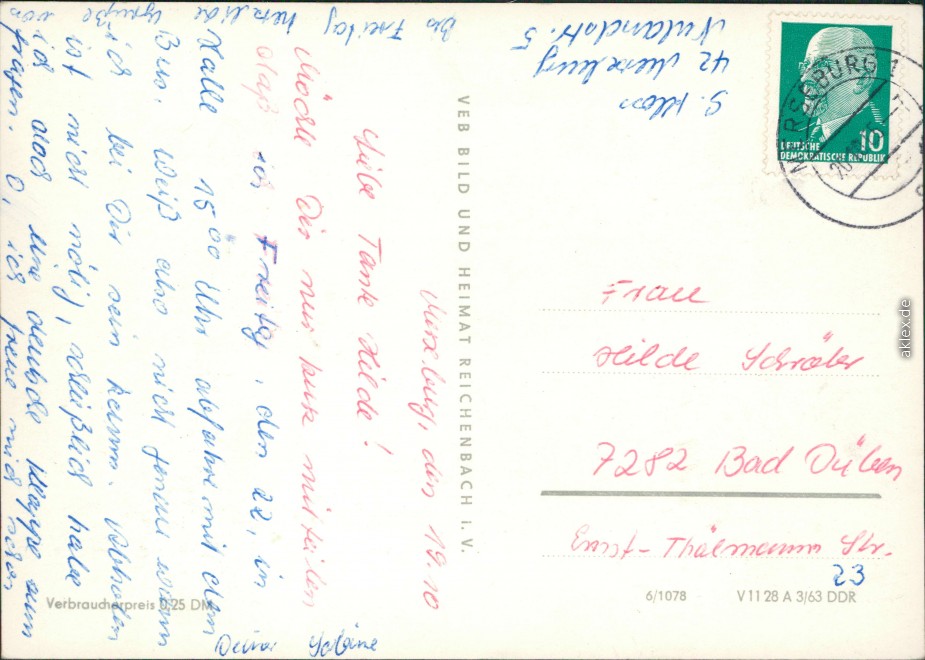 Merseburg, den 19.10
Liebe Tante Hilde!
Möchte Dir nur kurz mitteilen
daß ich Freitag, den 22, in
Halle 15 00 Uhr abfahre mit dem
Bus. Weiß also nicht genau wann
ich bei Dir sein kann. Abholen
ist nicht nötig, schließlich habe
ich auch eine deutsche Klappe zum
fragen. O, ich freue mich schon
Bis Freitag herzliche
Grüße von
Deine
S. Kloss
42 Merseburg
5
MERSEBURG 1
10
DEUTSCHE
DEMOKRATISCHE REPUBLIK
VEB BILD UND HEIMAT REICHENBACH I. V.
Frau
Hilde Schröter
7282 Bad Düben
Ernst-Thälmann Str.
23
Verbraucherpreis 0,25 DM
6/1078
V 11 28 A 3/63 DDR
aklex.de